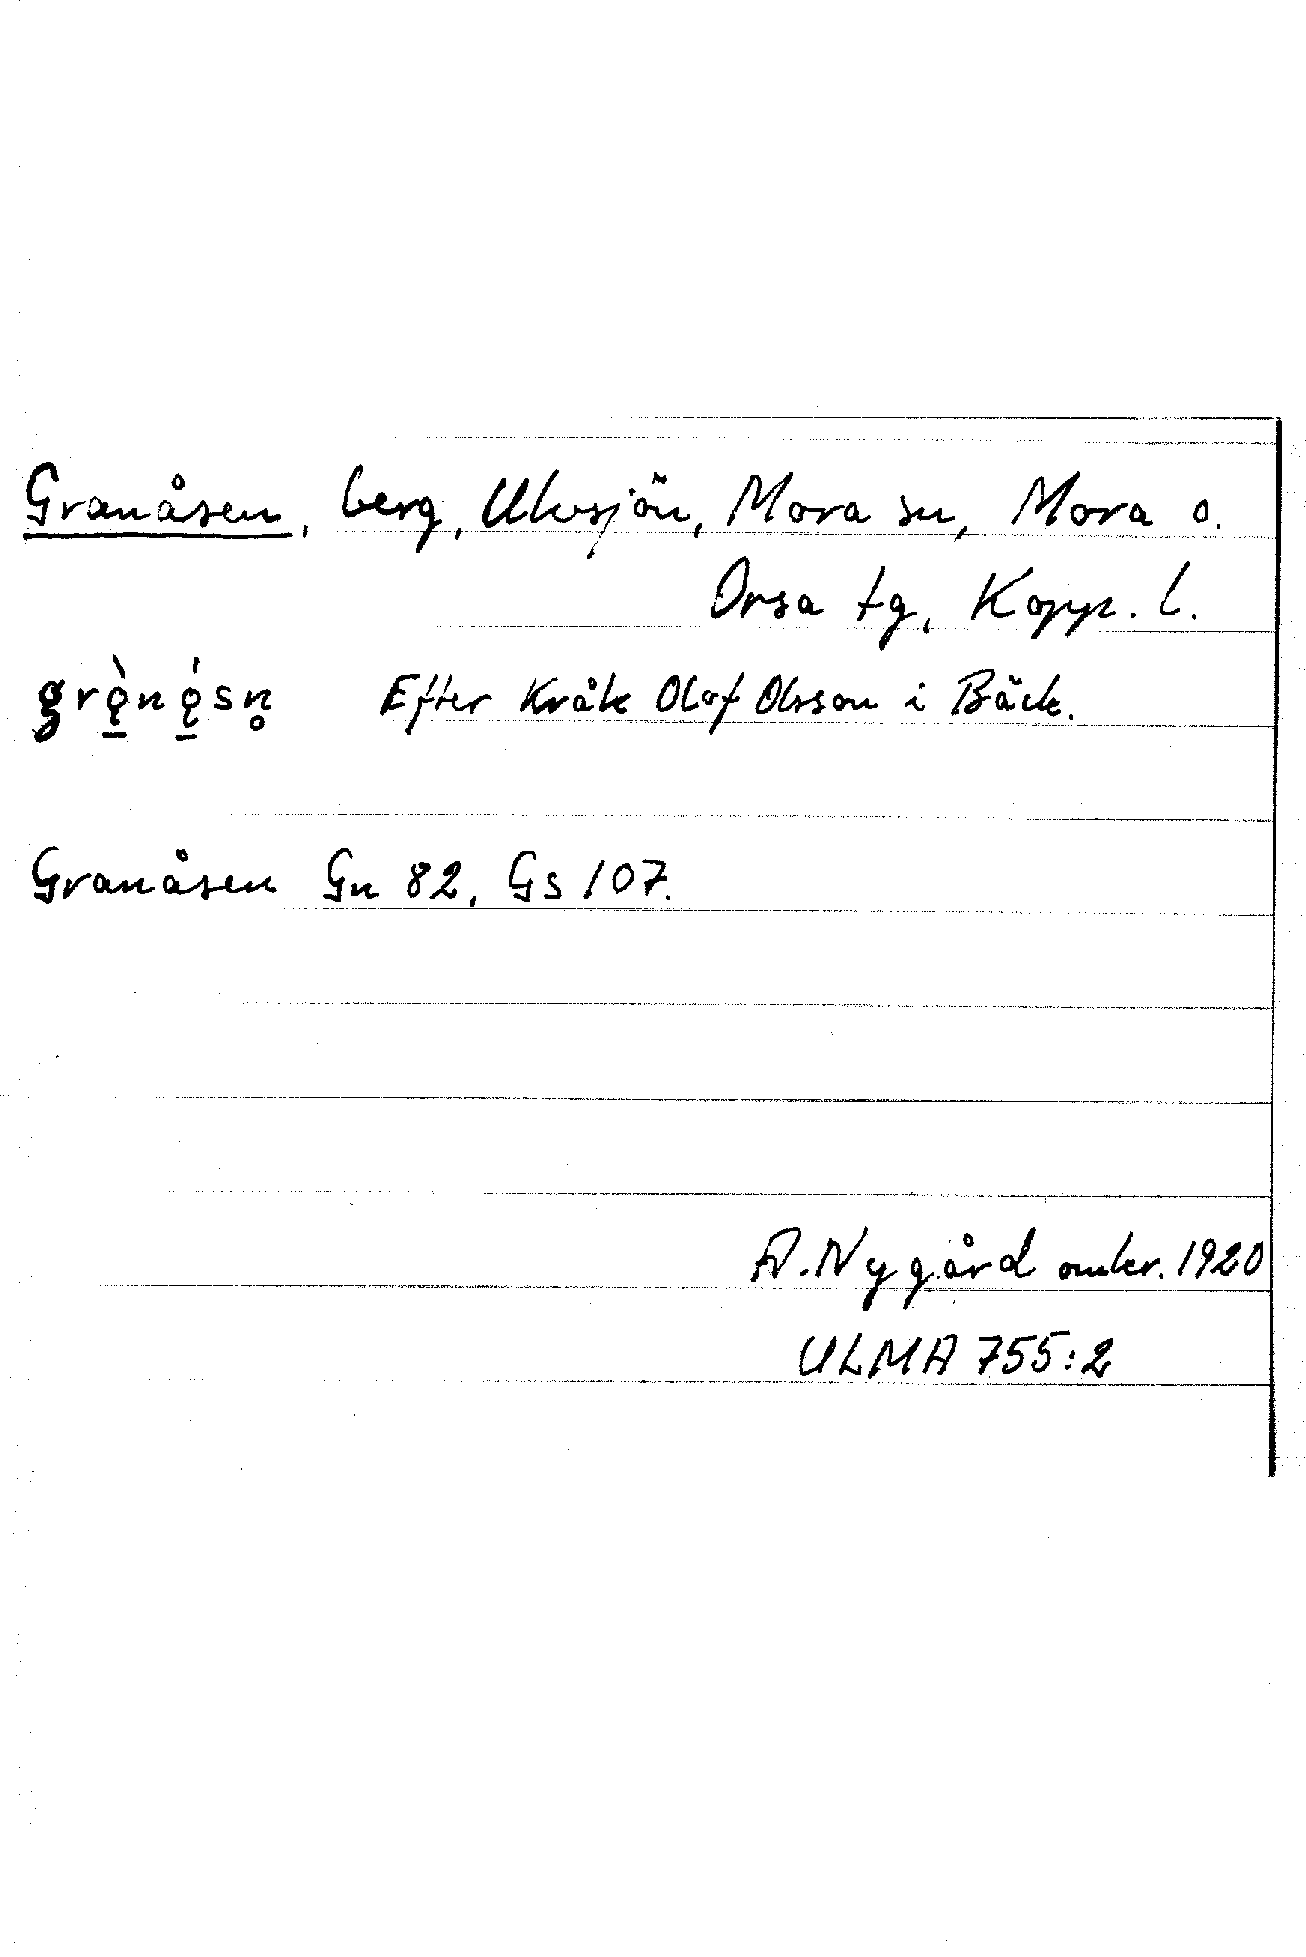 Granåsen, berg, Ulvsjön, Mora sn, Mora o.
Orsa tg, Kopp. l.
grǫ̀nǫ́sn̥ Efter Kråk Olof Olsson i Bäck.
Granåsen Gn 82, Gs 107.
A. Nygård omkr. 1920
ULMA 755:2